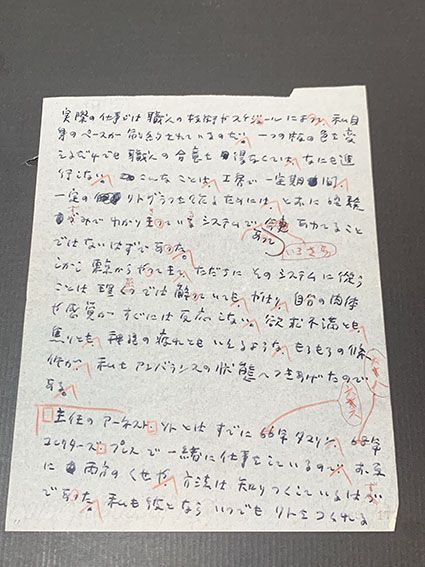 実際の仕事では職人の技術やスケジュールによって、私自
身のペースが
一つの版の色を変
えるだけでも職人の合意を得なくては、なにも進
行しない。こんなことは、工房で一定期間、
一定のリトグラフを
わかりきっているシステムで、あわてること
あって
いまさら
ではないはずであった。
しかし東京からやって来て、ただちにそのシステムに従う
ことは理くつでは解っていても、やはり自分の肉体
や感覚がすぐには反応しない。欲求不満とも、
焦りとも、神経の疲れともいえるような、もろもろの条
件が、私をアンバランスの状態へつきあげたので
ある。
主任のアーネスト・リトとはすでに66年タマリンド、68年
コレクターズ・プレスで一緒に仕事をしているので、お互
に両方のくせや、方法は知りつくしているはず
であった。私も彼となら、いつでもリトをつくれる
17